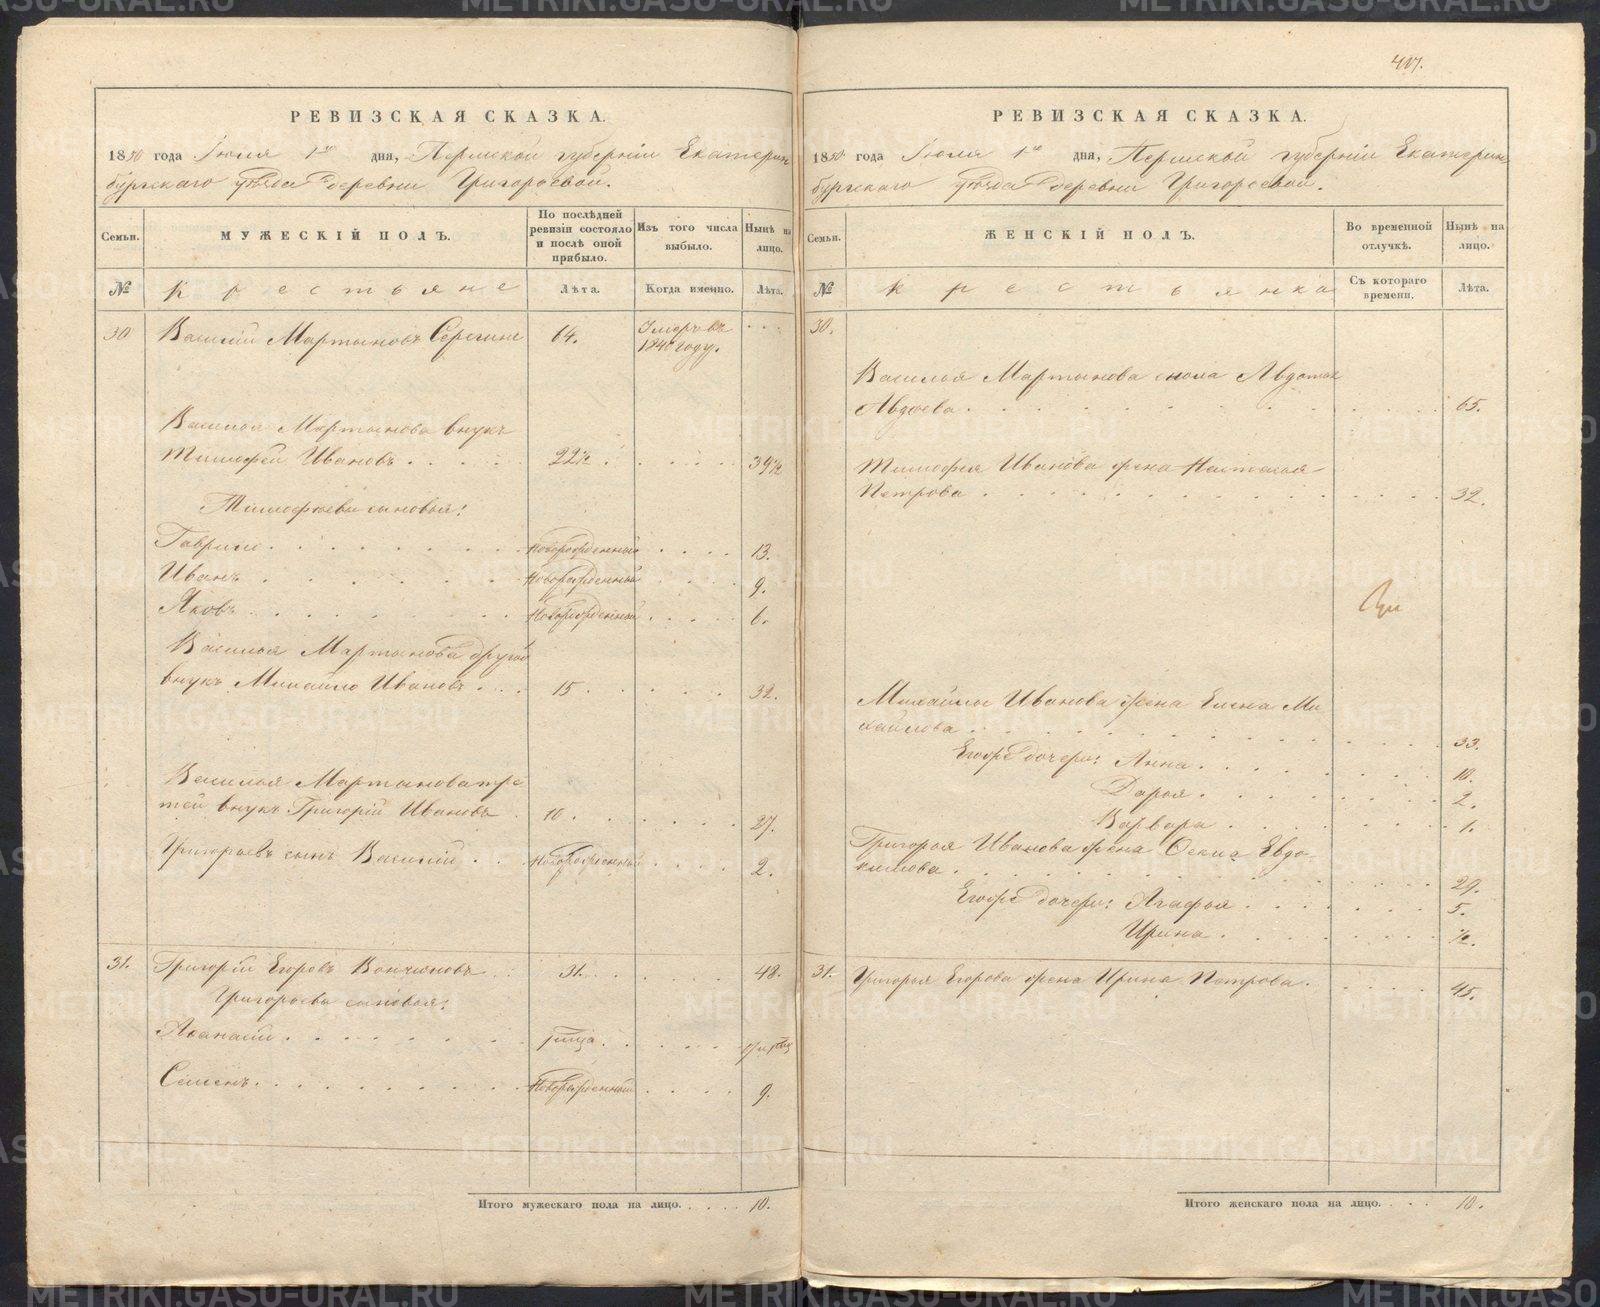 РЕВИЗСКАЯ СКАЗКА.
1850 года Июля 1го дня, Пермской губернiи Екатерин
бургскаго уѣзда деревни Григорьевой.
Семьи.
МУЖЕСКIЙ ПОЛЪ.
По послѣдней ревизiи состояло и послѣ оной прибыло.
Изъ того числа выбыло.
Нынѣ на лицо.
№
Крестьяне
Лѣта.
Когда именно.
Лѣта.
30
Василiй Мартыновъ Серегинъ 64. Умеръ въ
184 году.
Василья Мартынова внукъ
Тимофей Ивановъ 22½ 39½
Тимофѣевы сыновья:
Гаврило новорожденный 13.
Иванъ новорожденный 9.
Яковъ новорожденный 6.
Василья Мартынова другой
внукъ Михайло Ивановъ 15 32.
Василья Мартынова тре
тей внукъ Григорiй Ивановъ 10. 27.
Григорьевъ сынъ Василiй новорожденный 2.
31. Григорiй Егоровъ 31. 48.
Григорьевы сыновья:
Афанасiй
Семенъ новорожденный 9.
Итого мужескаго пола на лицо. 10.
407.
РЕВИЗСКАЯ СКАЗКА.
1850 года Июля 1го дня, Пермской губернiи Екатерин
бургскаго уѣзда деревни Григорьевой.
Семьи.
ЖЕНСКIЙ ПОЛЪ.
Во временной отлучкѣ.
Нынѣ на лицо.
№
крестьянка
Съ котораго времени.
Лѣта.
30.
Василья Мартынова сноха Авдотья
Авдѣева 65.
Тимофея Иванова жена Настасья
Петрова 32.
Михайлы Иванова жена Елена Ми
хайлова 33.
Егожъ дочери: Анна 10.
Дарья 2.
Варвара 1.
Григорья Иванова жена Евдо
кимова 29.
Егожъ дочери: Агафья 5.
Ирина ½.
31. Григорья Егорова жена Ирина Петрова. 45.
Итого женскаго пола на лицо. 10.
METRIKI.GASO-URAL.RU